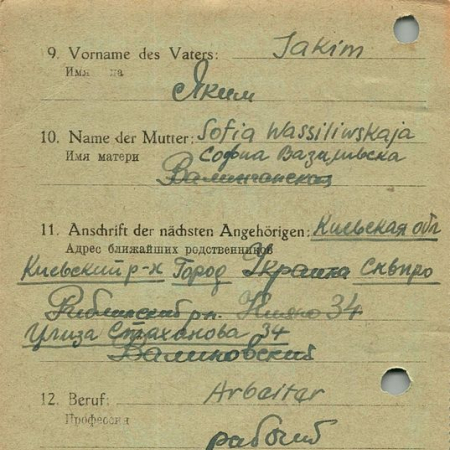 9. Vorname des Vaters: Jakim
Имя на
Яким
10. Name der Mutter: Sofia Wassiliwskaja
Имя матери София Вазильвска
11. Anschrift der nächsten Angehörigen: Киевская обл
Адрес ближайших родственников
Киевский р-н Город Украина Сквиро
34
Улиза Стаханова 34
Валиновский
12. Beruf: Arbeiter
Профессия
рабочий